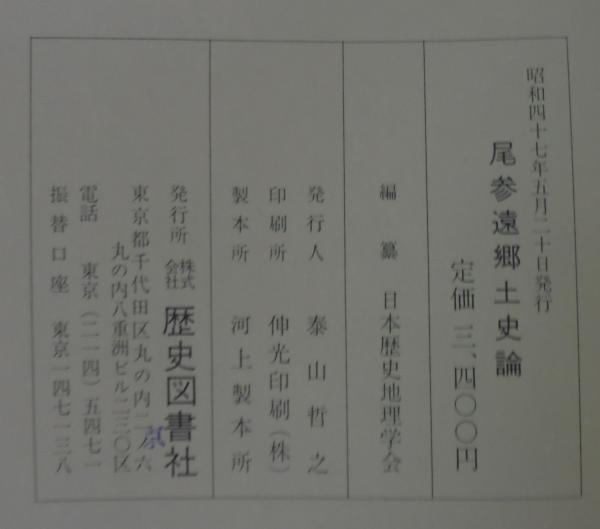 昭和四十七年五月二十日発行
尾参遠郷土史論
定価 三、四〇〇円
編纂 日本歴史地理学会
発行人 泰山哲之
印刷所 伸光印刷(株)
製本所 河上製本所
発行所 株式会社 歴史図書社
東京都千代田区丸の内二ノ六
丸の内八重洲ビル二三〇区
電話 東京(二一四)五四七一
振替口座 東京一四七一三八